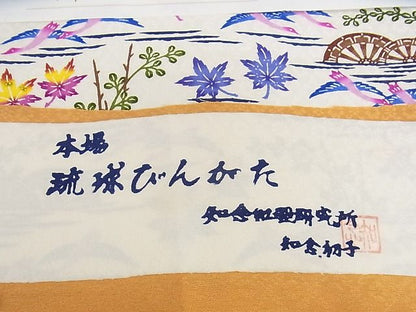 本場
琉球びんがた
知念紅型研究所
知念初子